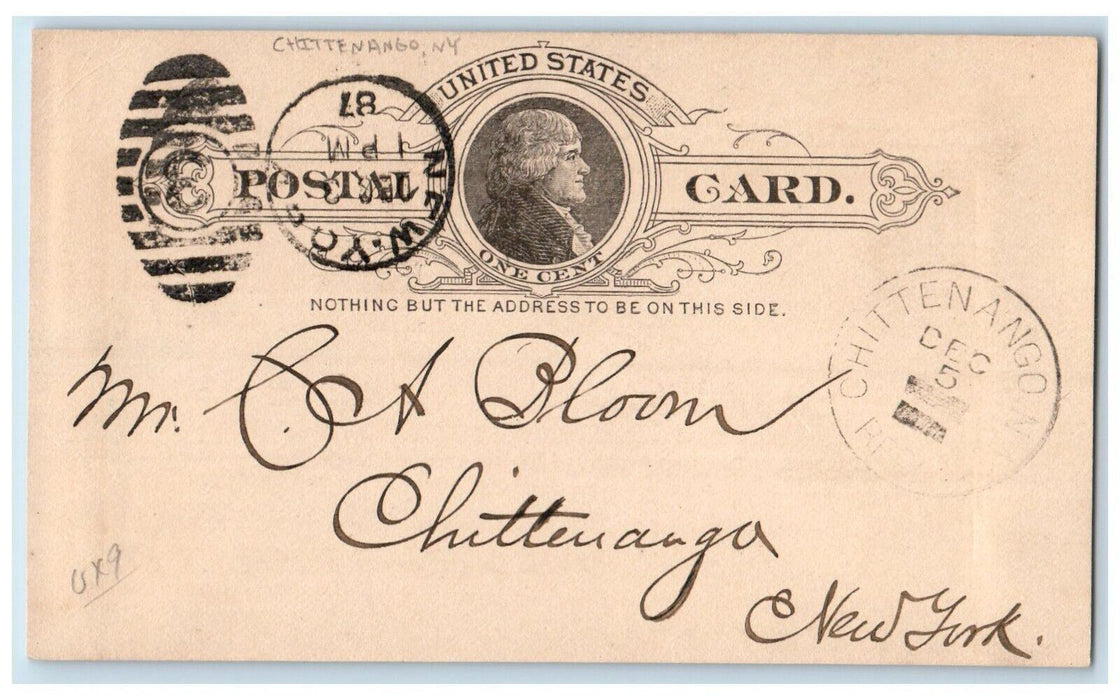 CHITTENANGO, NY
UNITED STATES
POSTAL CARD.
ONE CENT
NEW-YO
1 PM
87
3
NOTHING BUT THE ADDRESS TO BE ON THIS SIDE.
CHITTENANGO N
DEC
RE
Mr. C A Bloom
Chittenango
New York.
UX9